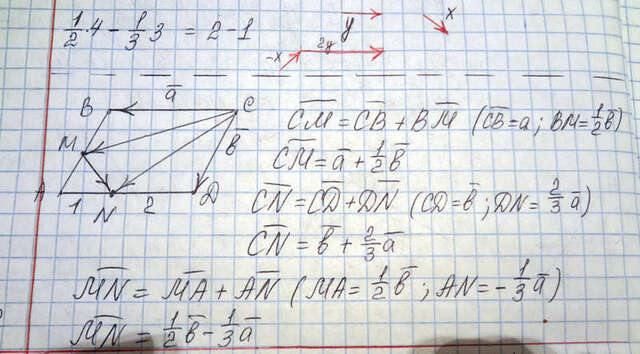 1/2 · 4 - 1/3 3 = 2 - 1
y
x
-x 2y
a̅
B C
M b̅
A 1 N 2 D
C̅M̅ = C̅B̅ + B̅M̅ (C̅B̅ = a ; BM = 1/2 b̅)
C̅M̅ = a̅ + 1/2 b̅
C̅N̅ = C̅D̅ + D̅N̅ (CD = b̅ ; DN = 2/3 a̅)
C̅N̅ = b̅ + 2/3 a̅
M̅N̅ = M̅A̅ + A̅N̅ (MA = 1/2 b̅ ; AN = - 1/3 a̅)
M̅N̅ = 1/2 b̅ - 1/3 a̅